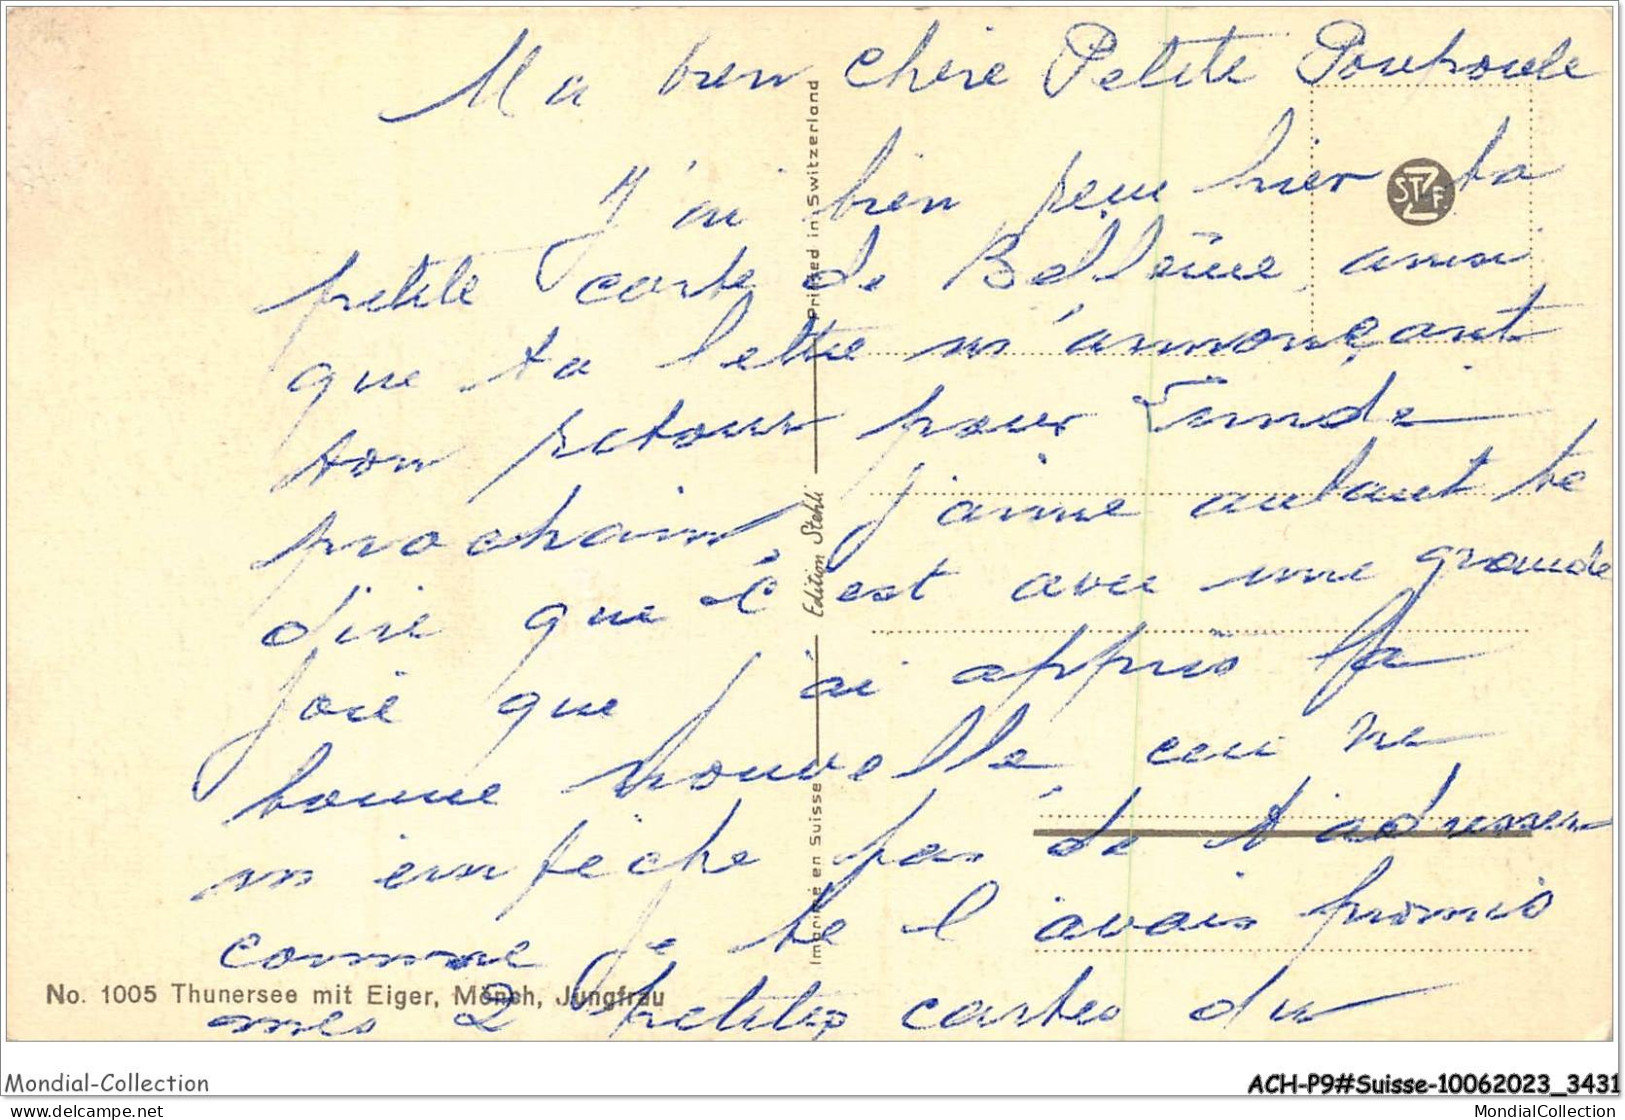 Ma bien chère Petite Poupoule
J'ai bien reçu hier ta
petite carte de Bellême, ainsi
que ta lettre m'annonçant
ton retour pour Lundi
prochain, j'aime autant te
dire que c'est avec une grande
joie que j'ai appris la
bonne nouvelle, ceci ne
m'empêche pas de t'adresser
comme je te l'avais promis
mes 2 petites cartes du
Printed in Switzerland
Edition Stehli
Imprimé en Suisse
STZF
No. 1005 Thunersee mit Eiger, Mönch, Jungfrau
Mondial-Collection
ACH-P9#Suisse-10062023_3431
www.delcampe.net
MondialCollection